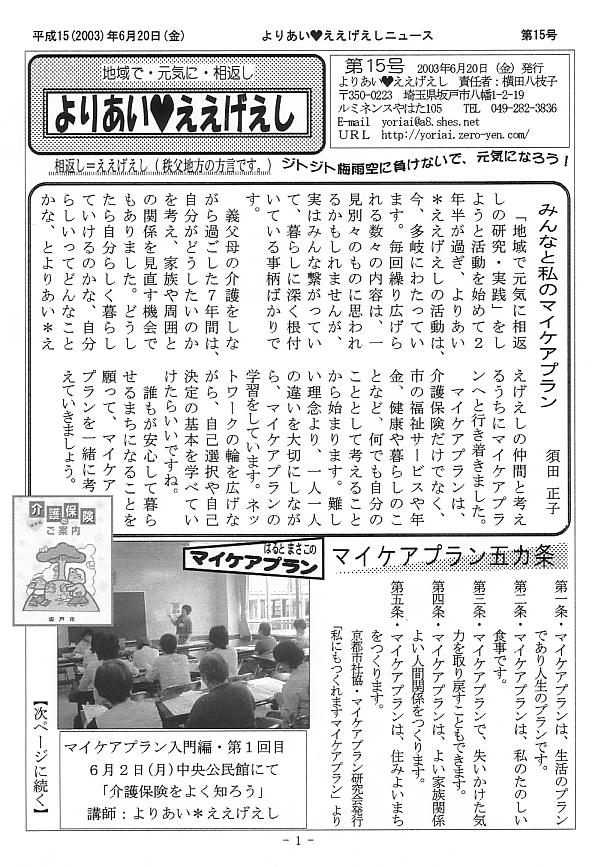 平成15(2003)年6月20日(金)
よりあい♥ええげえしニュース
第15号
地域で・元気に・相返し
よりあい♥ええげえし
第15号 2003年6月20日(金)発行
よりあい♥ええげえし 責任者:横田八枝子
〒350-0223 埼玉県坂戸市八幡1-2-19
ルミネンスやはた105 TEL 049-282-3836
E-mail yoriai@a8.shes.net
URL http://yoriai.zero-yen.com/
相返し=ええげえし(秩父地方の方言です。)
ジトジト梅雨空に負けないで、元気になろう!
みんなと私のマイケアプラン
須田 正子
「地域で元気に相返
しの研究・実践」をし
ようと活動を始めて2
年半が過ぎ、よりあい
*ええげえしの活動は、
今、多岐にわたってい
ます。毎回繰り広げら
れる数々の内容は、一
見別々のものに思われ
るかもしれませんが、
実はみんな繋がってい
て、暮らしに深く根付
いている事柄ばかりで
す。
義父母の介護をしな
がら過ごした7年間は、
自分がどうしたいのか
を考え、家族や周囲と
の関係を見直す機会で
もありました。どうし
たら自分らしく暮らし
ていけるのかな、自分
らしいってどんなこと
かな、とよりあい*え
えげえしの仲間と考え
るうちにマイケアプラ
ンへと行き着きました。
マイケアプランは、
介護保険だけでなく、
市の福祉サービスや年
金、健康や暮らしのこ
となど、何でも自分の
こととして考えること
から始まります。難し
い理念より、一人一人
の違いを大切にしなが
ら、マイケアプランの
学習をしています。ネッ
トワークの輪を広げな
がら、自己選択や自己
決定の基本を学べてい
けたらいいですね。
誰もが安心して暮ら
せるまちになることを
願って、マイケア
プランを一緒に考
えていきましょう。
介護保険
ご案内
坂戸市
はるとまさこの
マイケアプラン
マイケアプラン五カ条
第一条・マイケアプランは、生活のプラン
であり人生のプランです。
第二条・マイケアプランは、私のたのしい
食事です。
第三条・マイケアプランで、失いかけた気
力を取り戻すこともできます。
第四条・マイケアプランは、よい家族関係
よい人間関係をつくります。
第五条・マイケアプランは、住みよいまち
をつくります。
京都市社協・マイケアプラン研究会発行
「私にもつくれますマイケアプラン」より
マイケアプラン入門編・第1回目
6月2日(月)中央公民館にて
「介護保険をよく知ろう」
講師:よりあい*ええげえし
【次ページに続く】
- 1 -